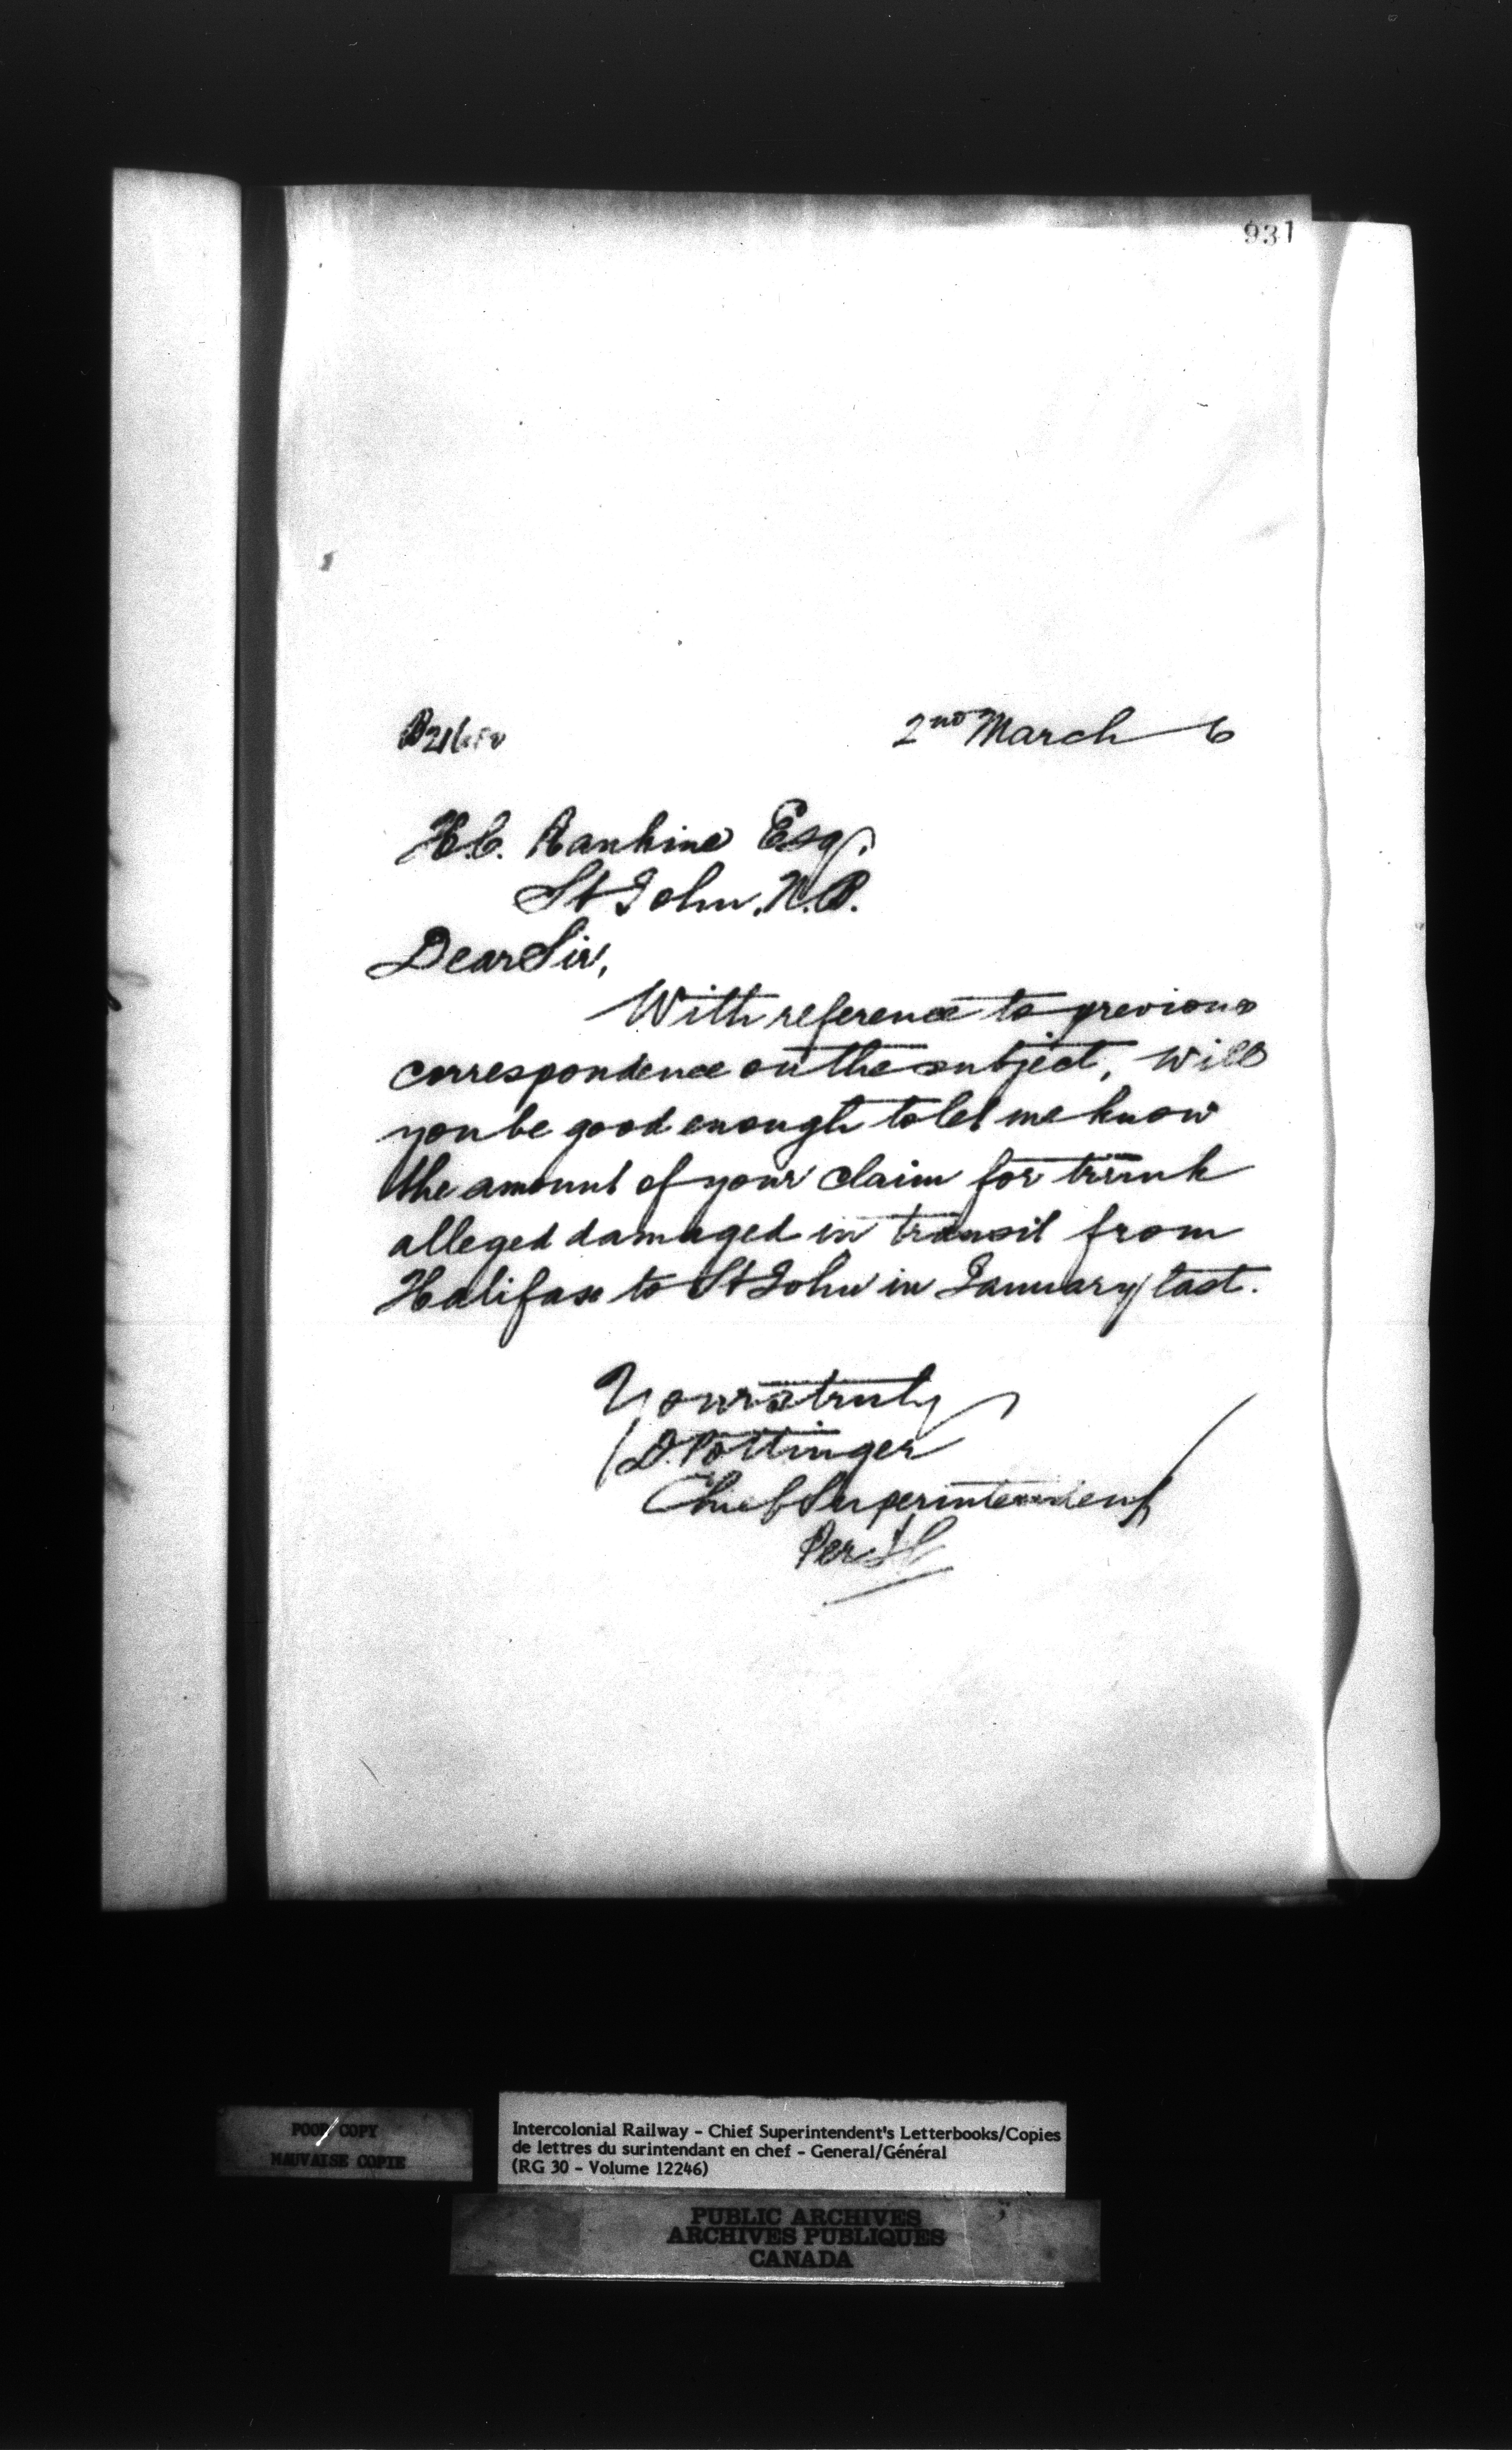 931
2nd March 6
H.C. Rankine Esq.
St John. N.B.
Dear Sir,
With reference to previous
correspondence on the subject, will
you be good enough to let me know
the amount of your claim for trunk
alleged damaged in transit from
Halifax to St John in January last.
Yours truly
D. Pottinger
Chief Superintendent
Per
POOR COPY
MAUVAISE COPIE
Intercolonial Railway - Chief Superintendent's Letterbooks/Copies
de lettres du surintendant en chef - General/Général
(RG 30 - Volume 12246)
PUBLIC ARCHIVES
ARCHIVES PUBLIQUES
CANADA